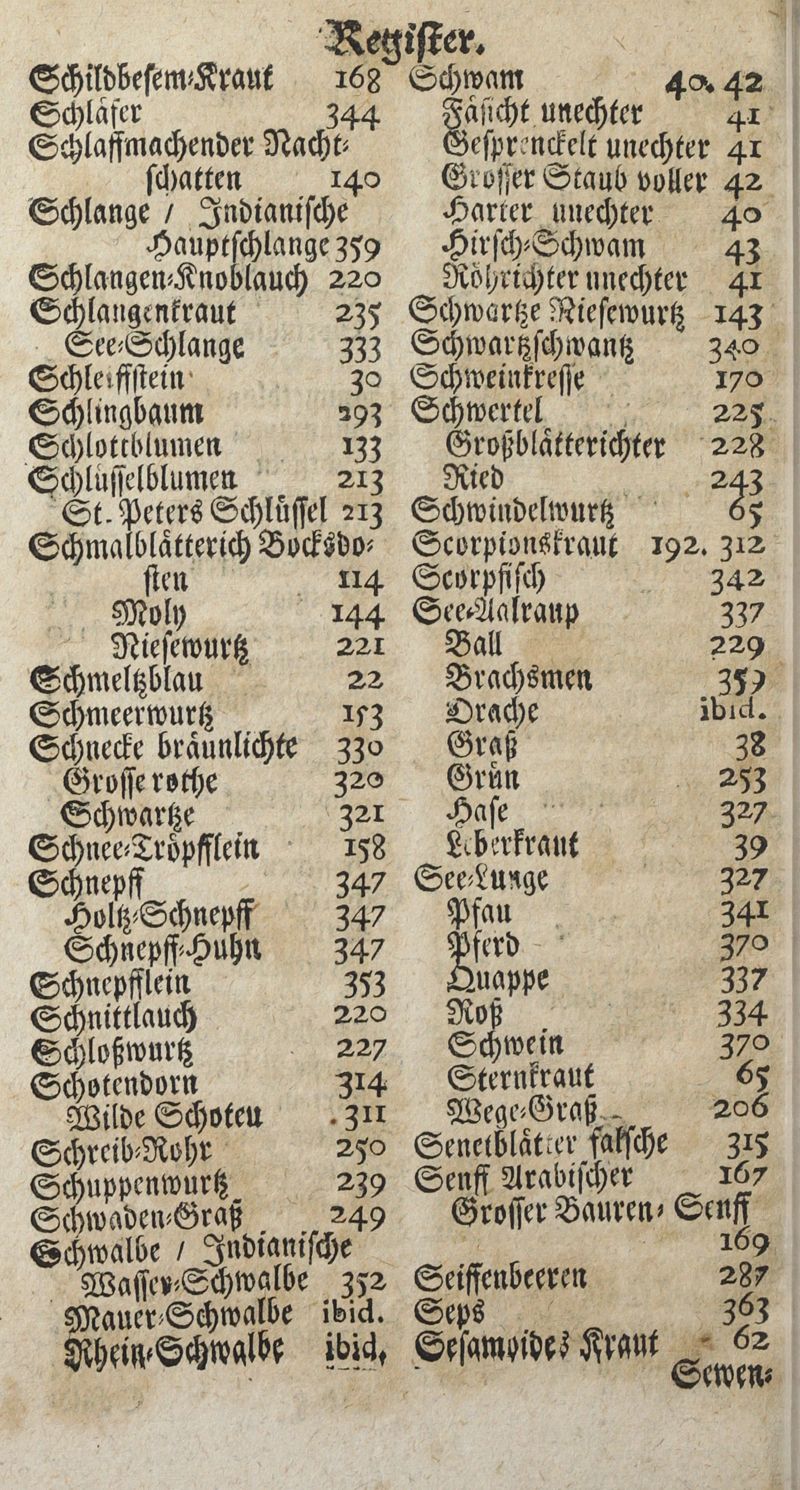 Register.
Schildbesem-Kraut 168
Schläfer 344
Schlaffmachender Nacht-
schatten 140
Schlange / Indianische
Hauptschlange 359
Schlangen-Knoblauch 220
Schlangenkraut 235
See-Schlange 333
Schleiffstein 30
Schlingbaum 293
Schlottblumen 133
Schlüsselblumen 213
St. Peters Schlüssel 213
Schmalblätterich Bocksdo-
sten 114
Moly 144
Niesewurtz 221
Schmeltzblau 22
Schmeerwurtz 153
Schnecke bräunlichte 330
Grosse rothe 320
Schwartze 321
Schnee-Tröpfflein 158
Schnepff 347
Holtz-Schnepff 347
Schnepff-Huhn 347
Schnepfflein 353
Schnittlauch 220
Schloßwurtz 227
Schotendorn 314
Wilde Schoten 311
Schreib-Rohr 250
Schuppenwurtz 239
Schwaden-Graß 249
Schwalbe / Indianische
Wasser-Schwalbe 352
Mauer-Schwalbe ibid.
Rhein-Schwalbe ibid.
Schwam 40. 42
Fäsicht unechter 41
Gesprenckelt unechter 41
Grosser Staub voller 42
Harter unechter 40
Hirsch-Schwam 43
Röhrichter unechter 41
Schwartze Niesewurtz 143
Schwartzschwantz 340
Schweinkresse 170
Schwertel 225
Großblätterichter 228
Ried 243
Schwindelwurtz 65
Scorpionskraut 192. 312
Scorpfisch 342
See-Aalraup 337
Ball 229
Brachsmen 359
Drache ibid.
Graß 38
Grün 253
Hase 327
Leberkraut 39
See-Lunge 327
Pfau 341
Pferd 370
Quappe 337
Roß 334
Schwein 370
Sternkraut 65
Wege-Graß 206
Senetblätter falsche 315
Senff Arabischer 167
Grosser Bauren-Senff
169
Seiffenbeeren 287
Seps 363
Sesamoides Kraut 62
Sewen-